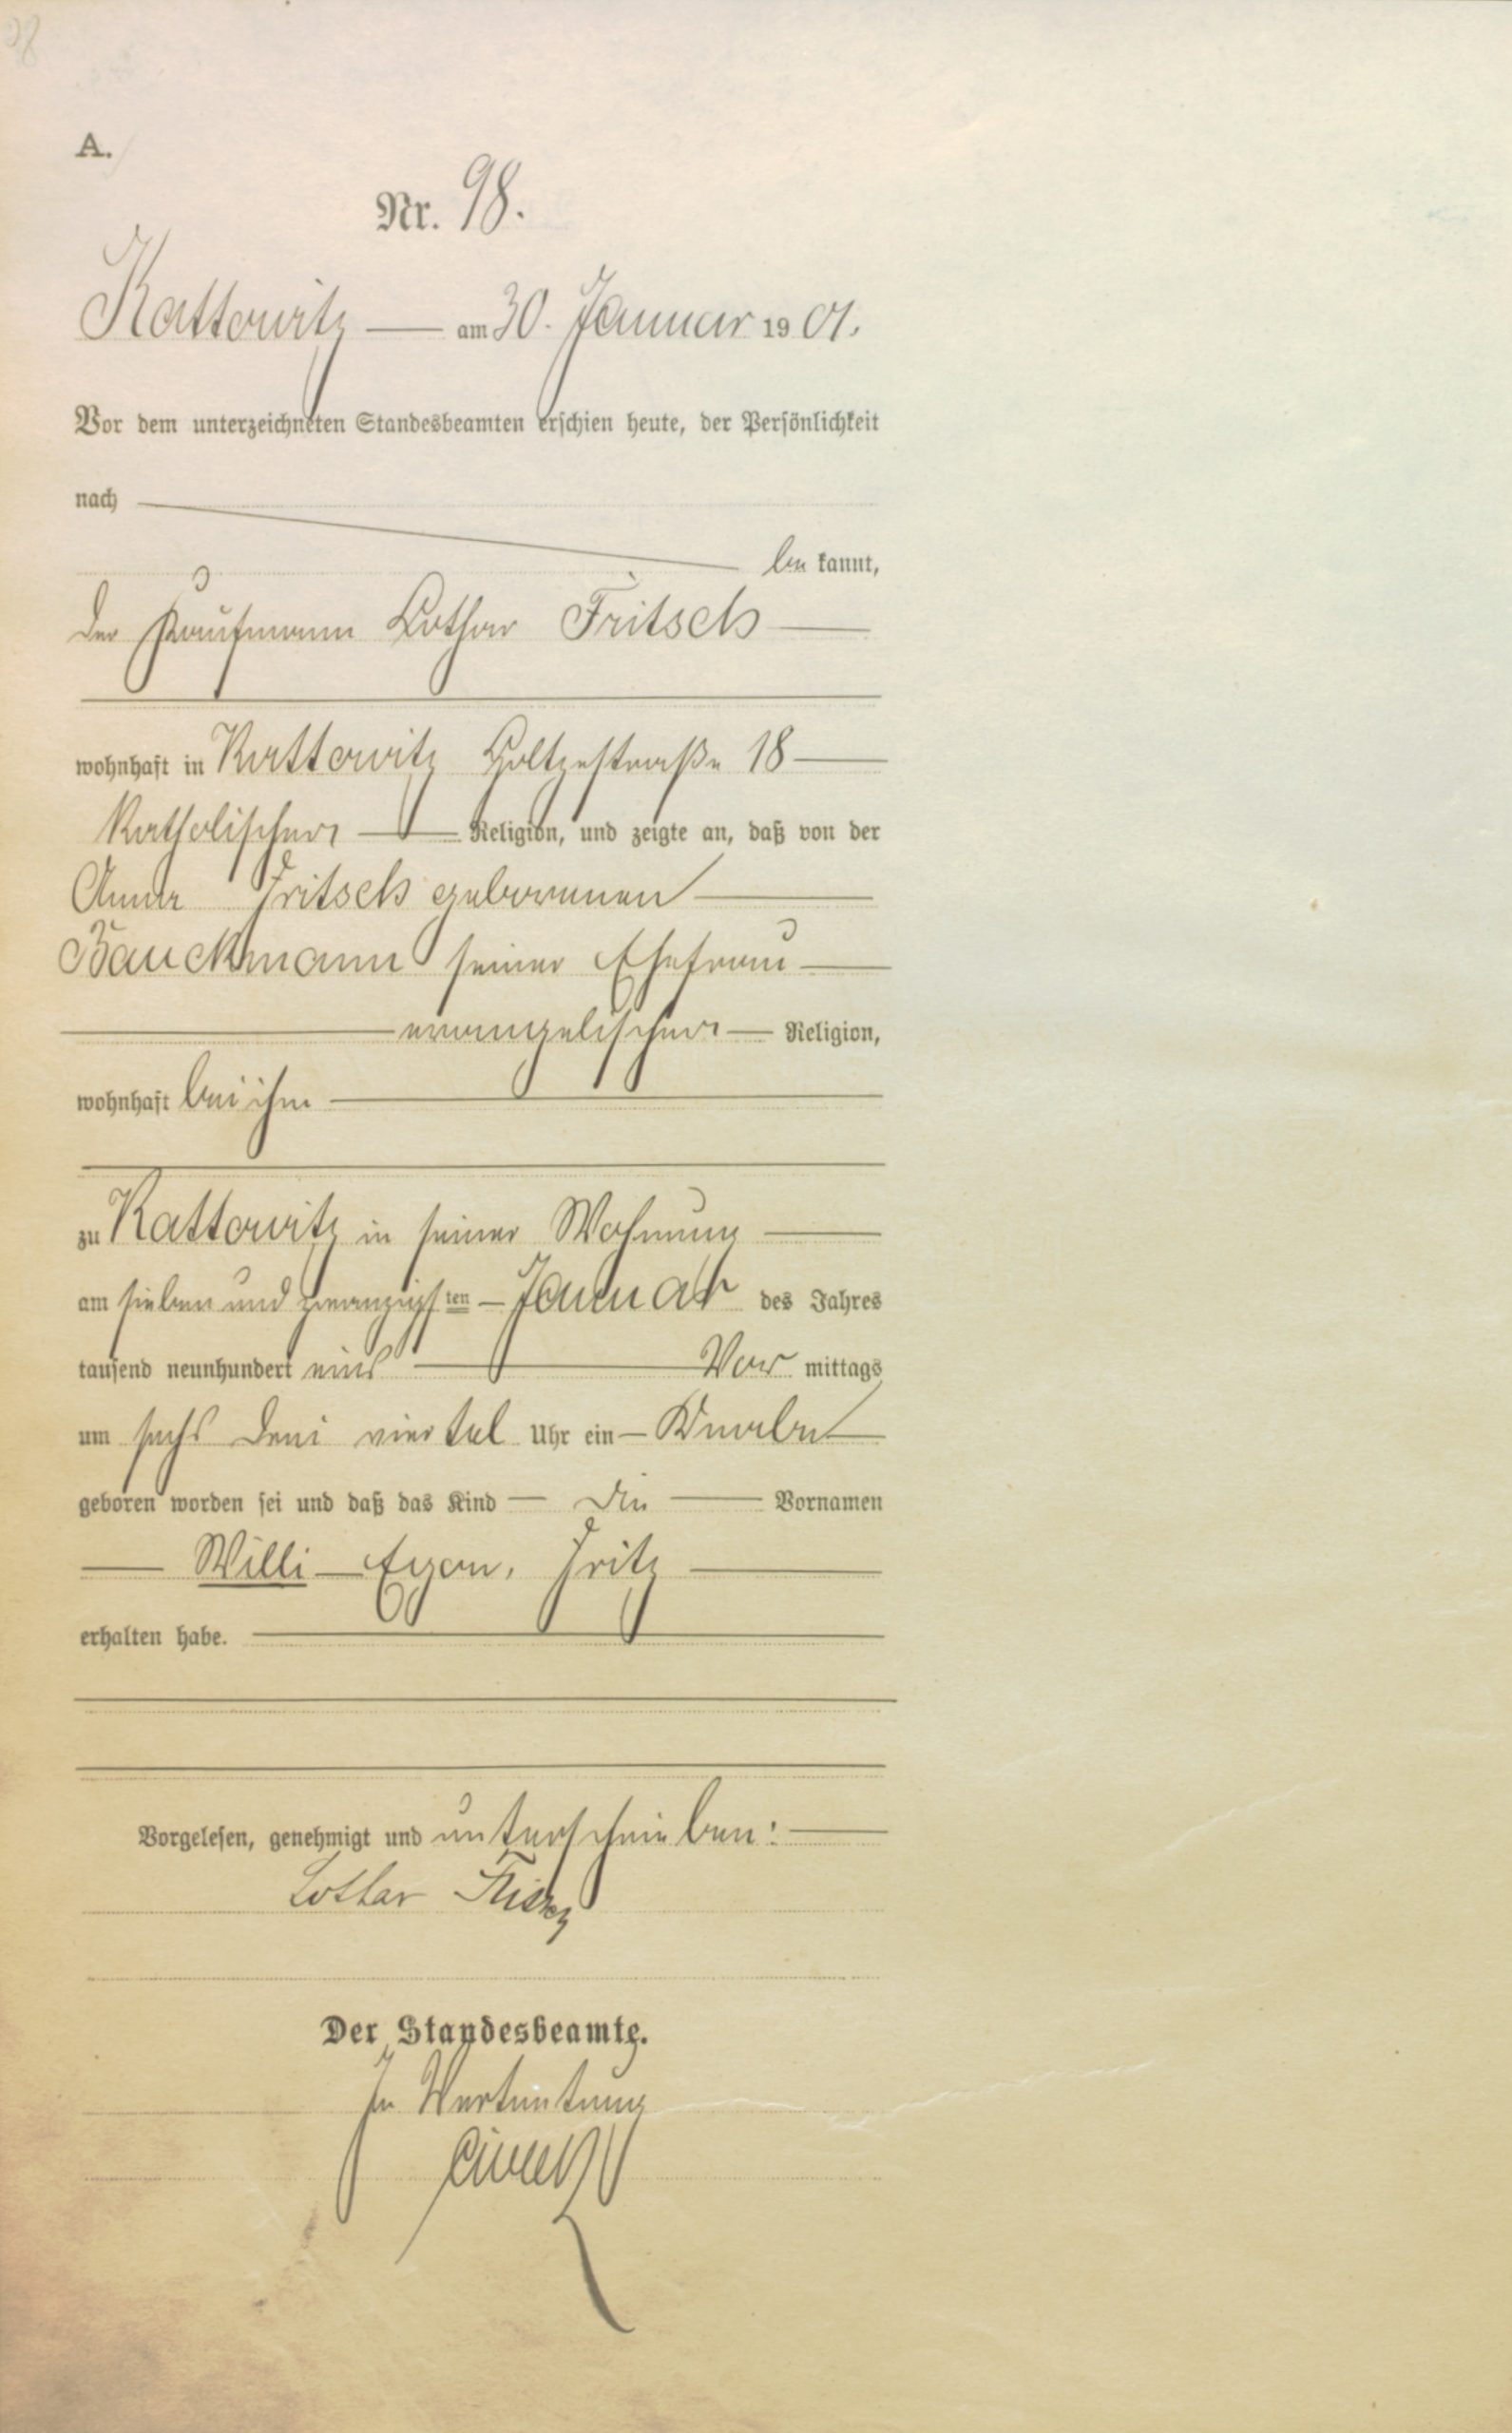 A.
Nr. 98.
Kattowitz — am 30. Januar 1901.
Vor dem unterzeichneten Standesbeamten erschien heute, der Persönlichkeit
nach
be kannt,
der Kaufmann Lothar Fritsch
wohnhaft in Kattowitz Holtzestraße 18
katholischer Religion, und zeigte an, daß von der
Anna Fritsch geborenen
Bauckmann seiner Ehefrau
evangelischer Religion,
wohnhaft bei ihm
zu Kattowitz in seiner Wohnung
am sieben und zwanzigsten Januar des Jahres
tausend neunhundert eins Vor mittags
um sechs drei viertel Uhr ein Knabe
geboren worden sei und daß das Kind die Vornamen
Willi Egon, Fritz
erhalten habe.
Vorgelesen, genehmigt und unterschrieben:
Lothar
Der Standesbeamte.
In Vertretung